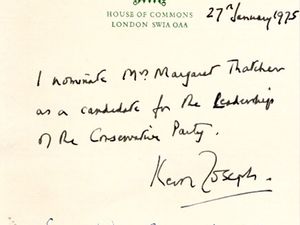 HOUSE OF COMMONS
LONDON SW1A 0AA
27th January 1975
I nominate Mrs Margaret Thatcher
as a candidate for the Leadership
of the Conservative Party.
Keith Joseph.